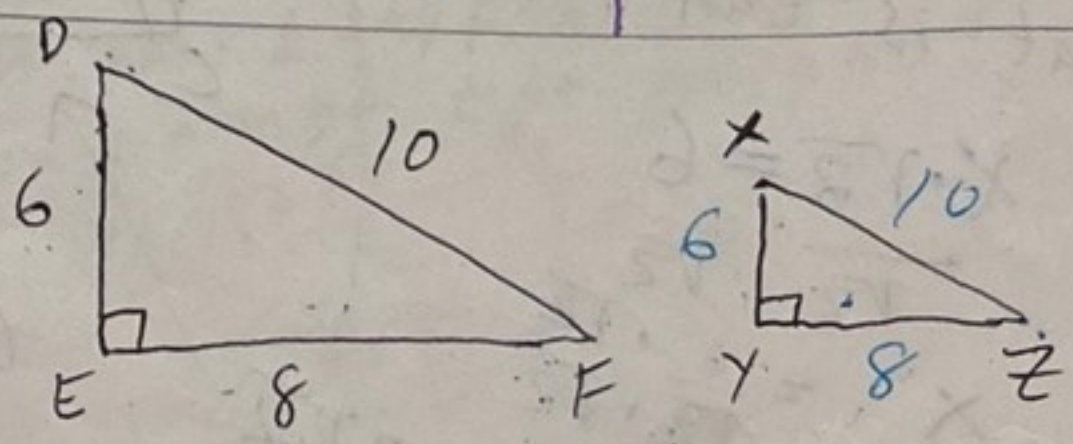 D
10
6
E
8
F
X
10
6
Y
8
Z